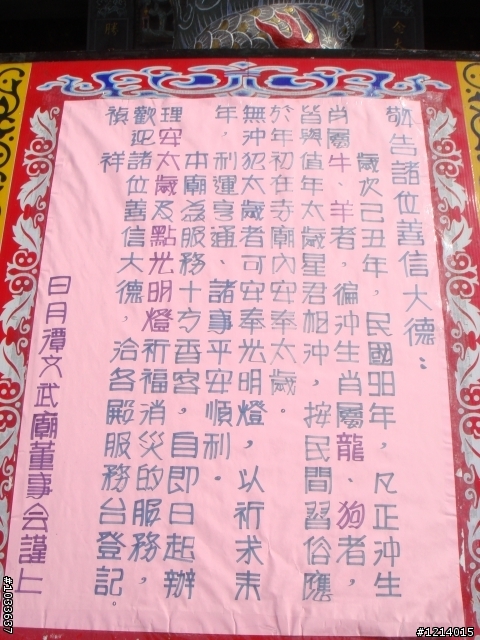 敬告諸位善信大德：
歲次己丑年，民國98年，凡正沖生
肖屬牛、羊者，徧沖生肖屬龍、狗者，
皆與值年太歲星君相沖，按民間習俗應
於年初在寺廟內安奉太歲。
無沖犯太歲者可安奉光明燈，以祈求未
年，利運亨通、諸事平安順利．
本廟為服務十方香客，自即日起辦
理安太歲及點光明燈祈福消災的服務，
歡迎諸位善信大德，洽各殿服務台登記。
禎祥
日月潭文武廟董事会謹上
#1088637
#1214015